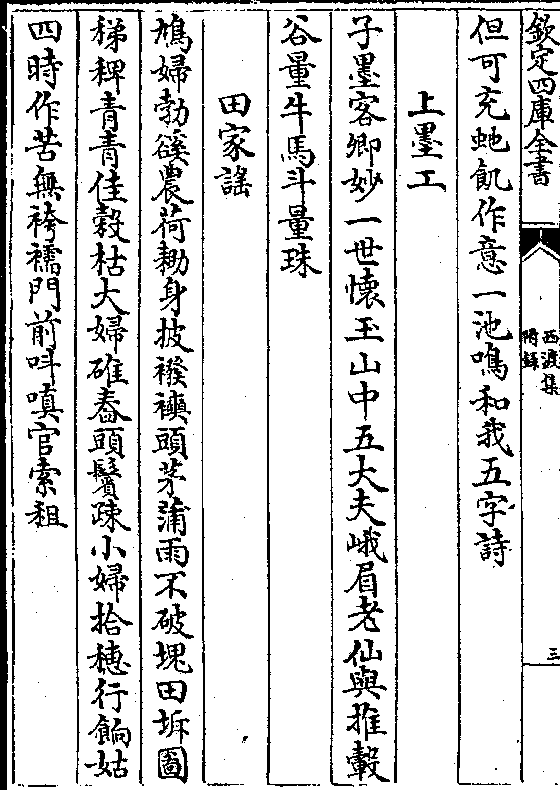 欽定四庫全書
西渡集
附錄
三
但可充虵飢作意一池鳴和我五字詩
上墨工
子墨客卿妙一世懷玉山中五大夫峨眉老仙與推轂
谷量牛馬斗量珠
田家謡
鳩婦勃谿農荷耡身披襏襫頭茅蒲雨不破塊田坼圖
稊稗青青佳穀枯大婦碓舂頭鬢疎小婦拾穗行餉姑
四時作苦無袴襦門前叫嗔官索租